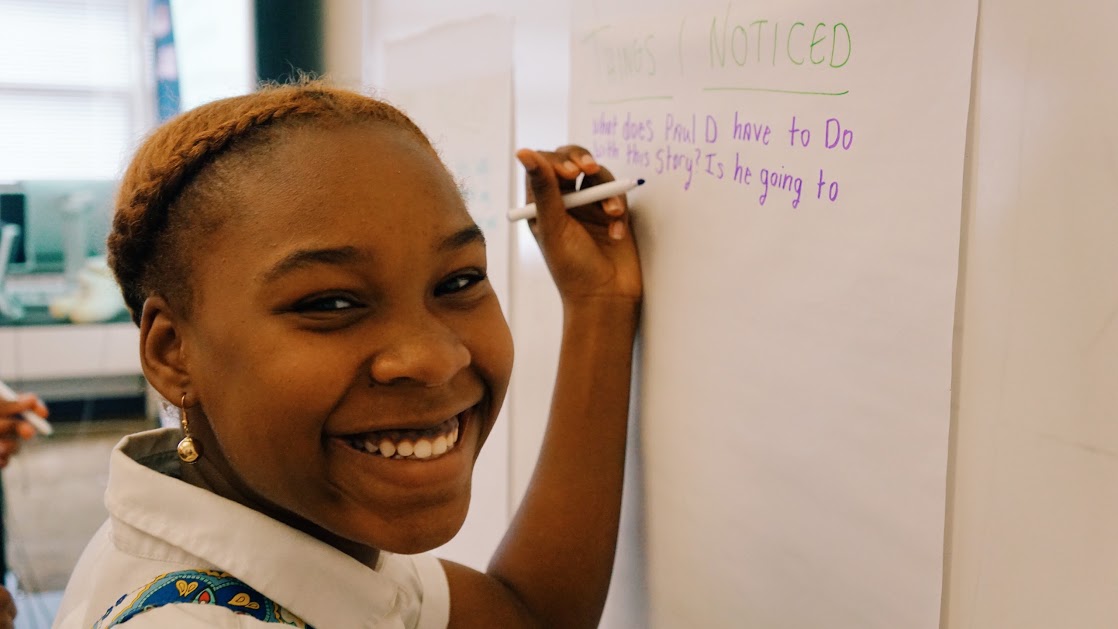 THINGS I NOTICED
what does Paul D have to Do
with this story? Is he going to